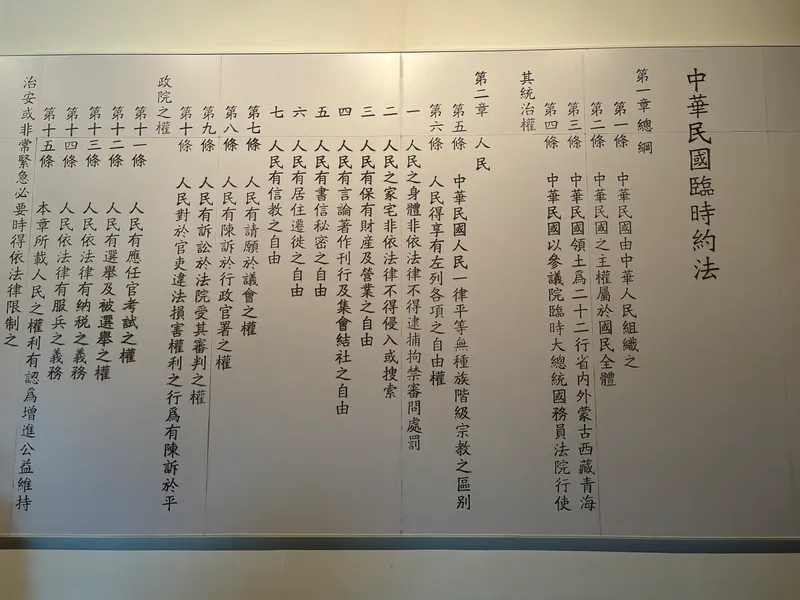 中華民國臨時約法
第一章總綱
第一條 中華民國由中華人民組織之
第二條 中華民國之主權屬於國民全體
第三條 中華民國領土爲二十二行省内外蒙古西藏青海
第四條 中華民國以參議院臨時大總統國務員法院行使
其統治權
第二章 人民
第五條 中華民國人民一律平等無種族階級宗教之區别
第六條 人民得享有左列各項之自由權
一 人民之身體非依法律不得逮捕拘禁審問處罰
二 人民之家宅非依法律不得侵入或搜索
三 人民有保有財産及營業之自由
四 人民有言論著作刊行及集會結社之自由
五 人民有書信秘密之自由
六 人民有居住遷徙之自由
七 人民有信教之自由
第七條 人民有請願於議會之權
第八條 人民有陳訴於行政官署之權
第九條 人民有訴訟於法院受其審判之權
第十條 人民對於官吏違法損害權利之行爲有陳訴於平
政院之權
第十一條 人民有應任官考試之權
第十二條 人民有選舉及被選舉之權
第十三條 人民依法律有納税之義務
第十四條 人民依法律有服兵之義務
第十五條 本章所載人民之權利有認爲增進公益維持
治安或非常緊急必要時得依法律限制之